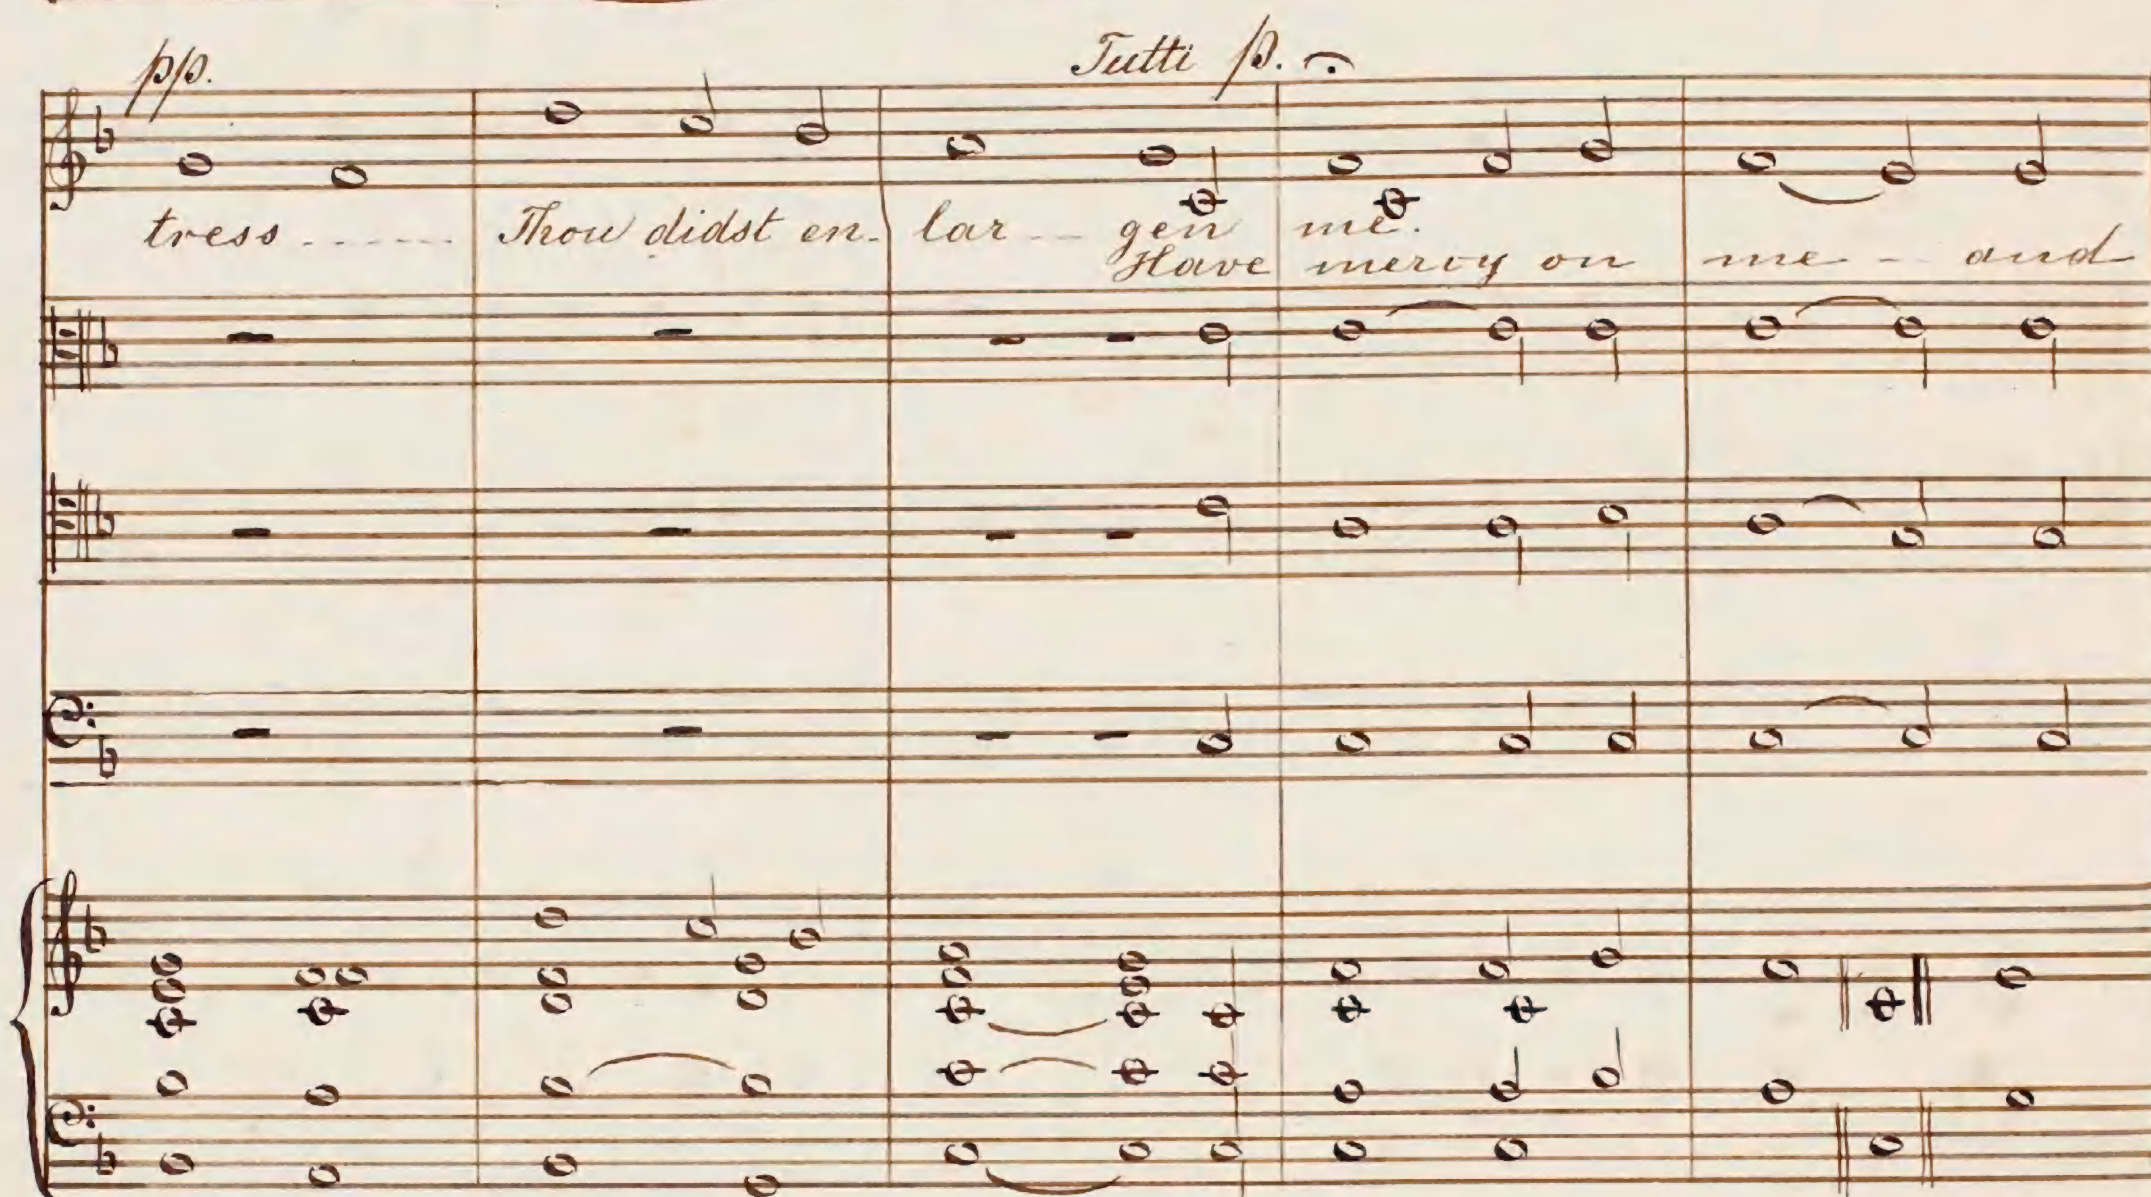 pp. Tutti p.
tress ..... Thou didst en- lar -- gen me.
Have mercy on me -- and